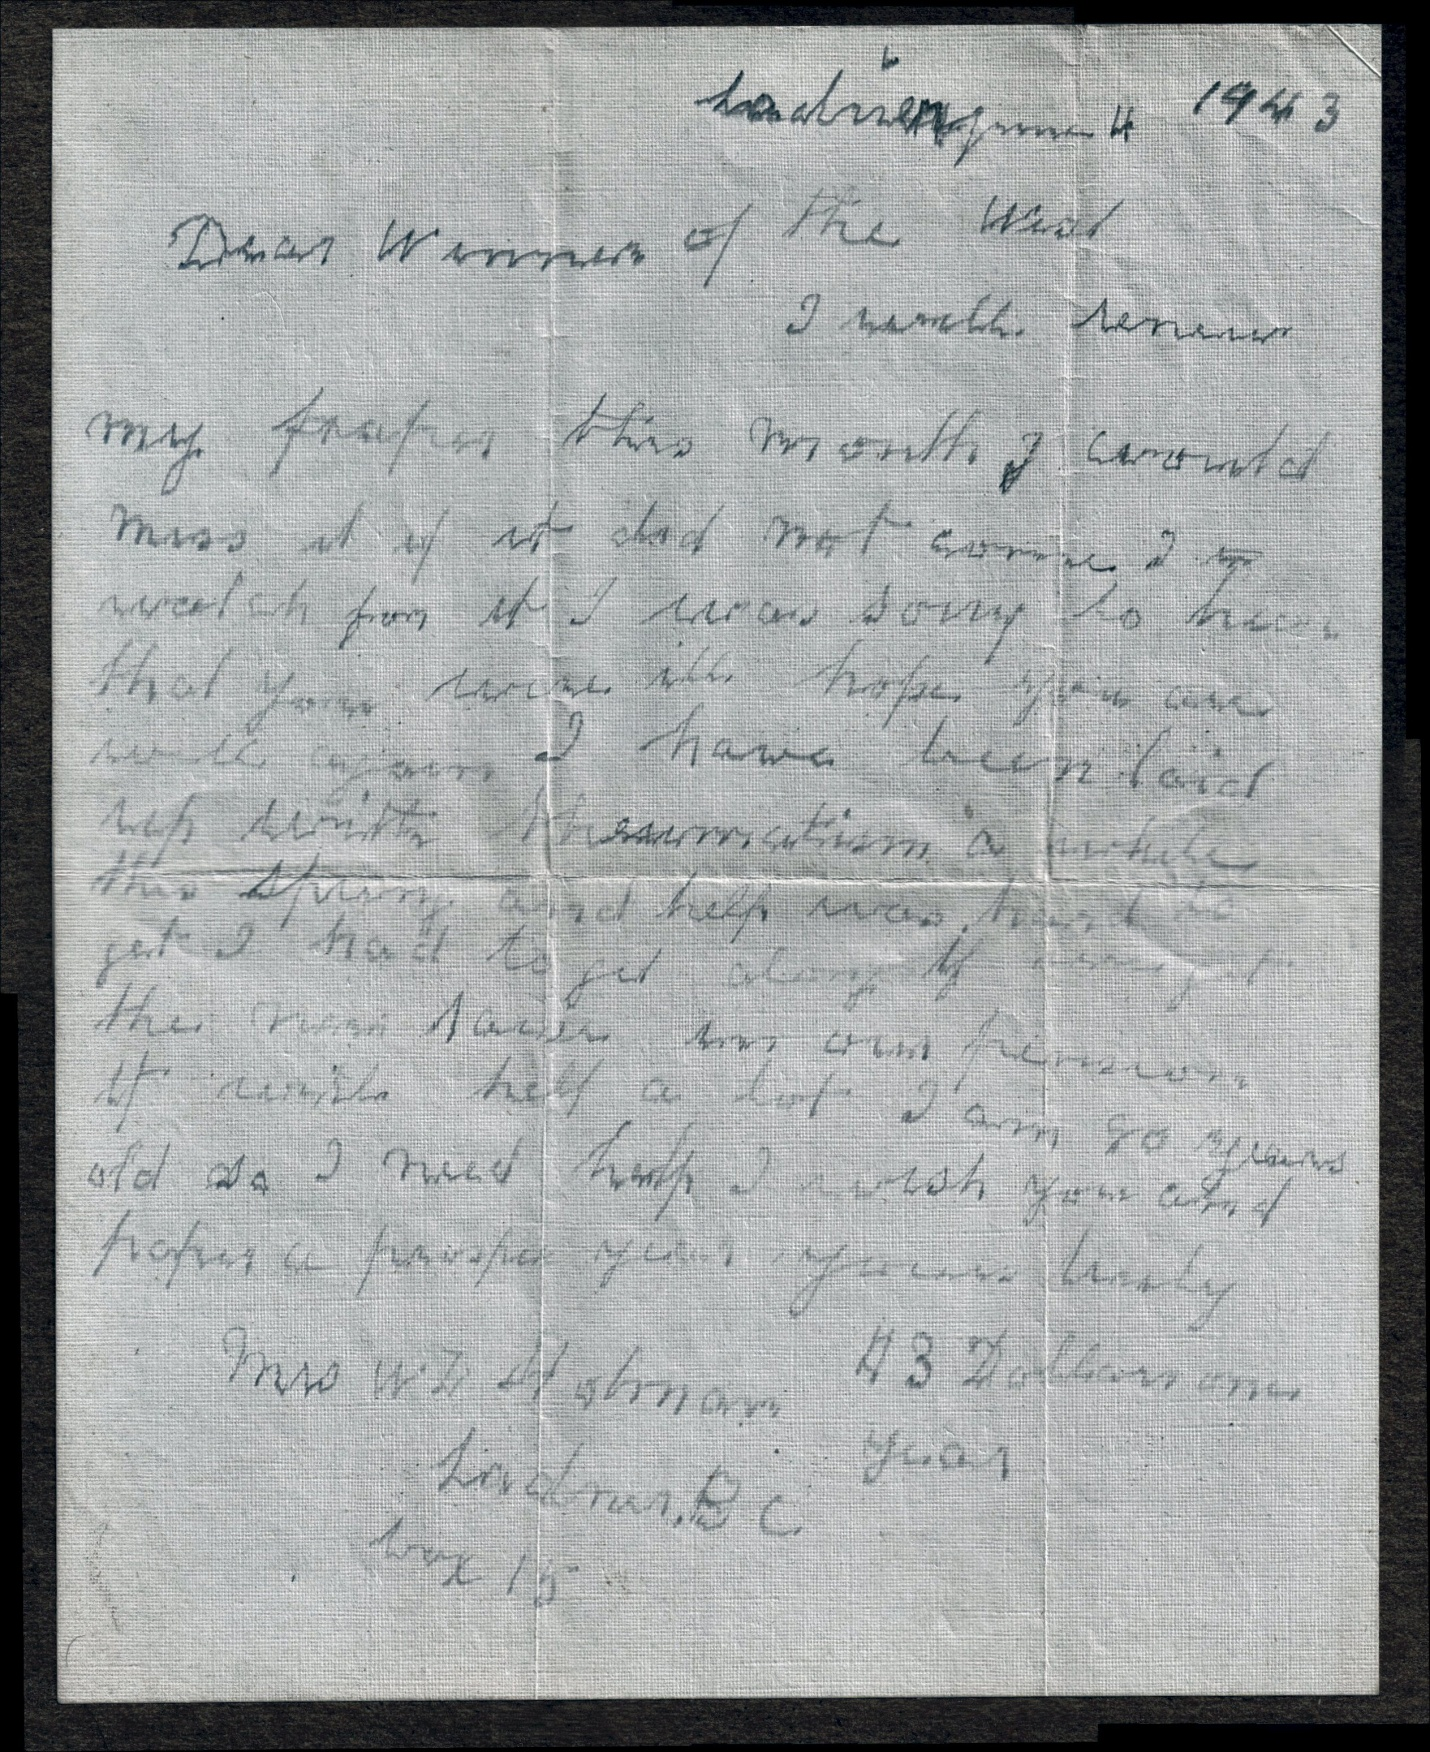 Ladner June 4 1943
Dear Women of the West
I will renew
my paper this month I would
miss it if it did not come I
watch for it I was sorry to hear
that you were ill hope you are
well again I have been laid
up with rheumatism a while
this spring and help was hard to
get I had to get along If we get
the new raise in our pension
It will help a lot I am 80 years
old so I need help I wish you and
paper a prosper year yours truly
Mrs W D
43 Dollars one
year
Ladner B C
box 15